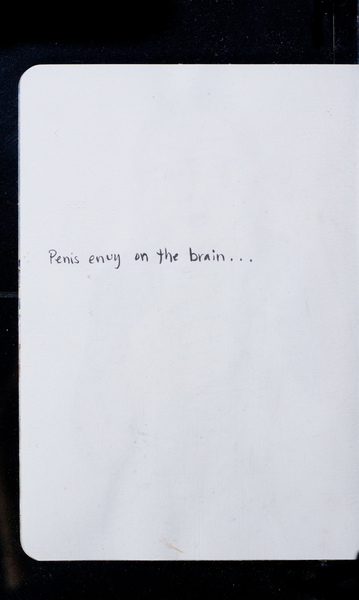 Penis envy on the brain...